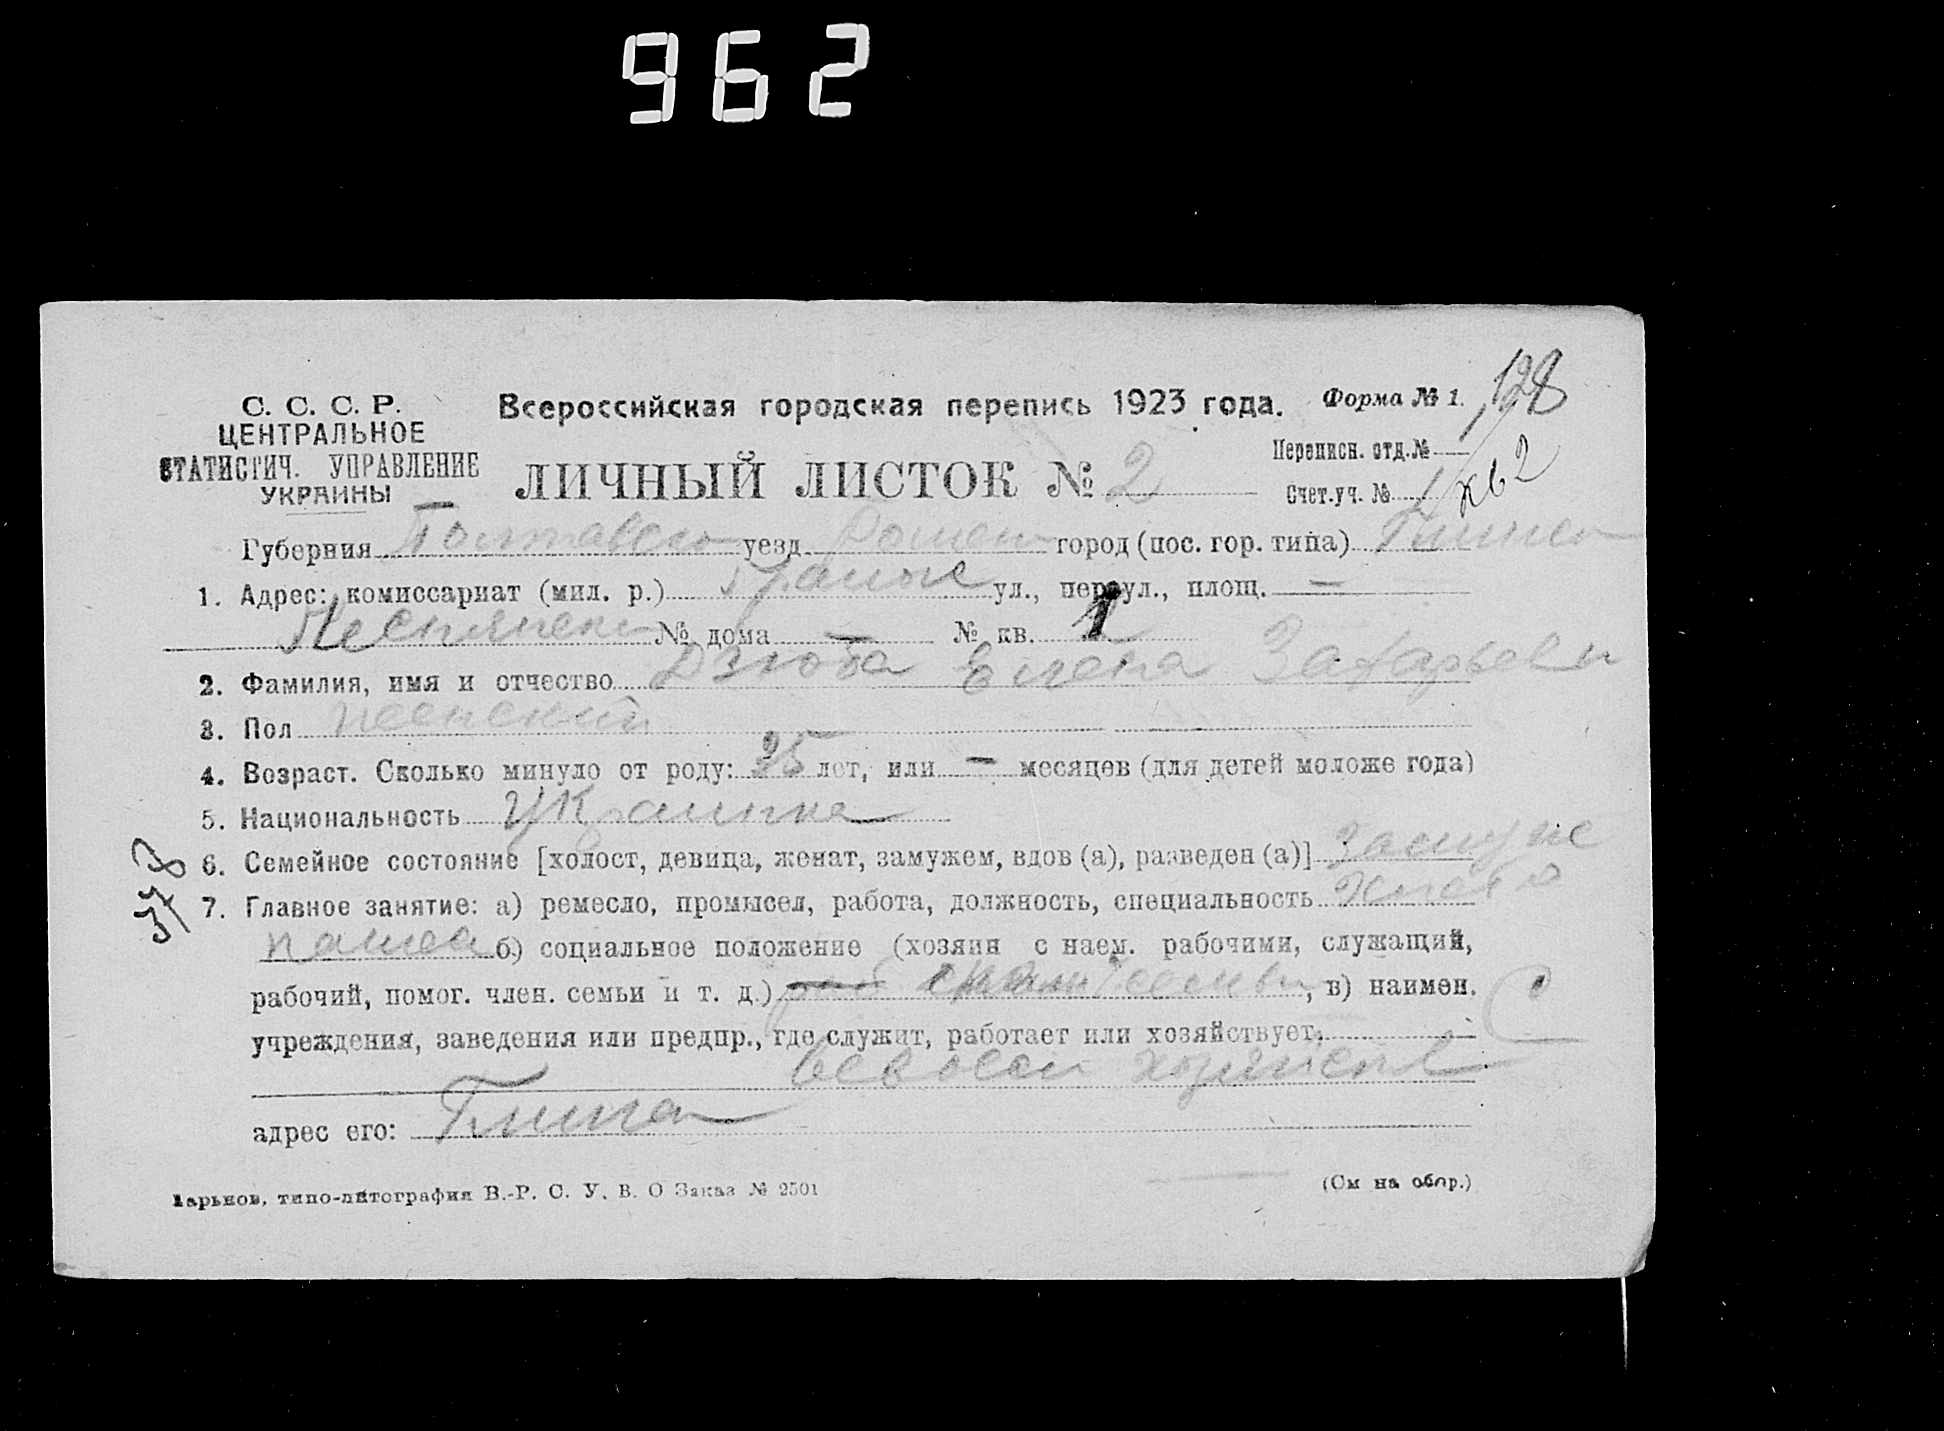 962
С. С. С. Р.
ЦЕНТРАЛЬНОЕ
СТАТИСТИЧ. УПРАВЛЕНИЕ
УКРАИНЫ
Всероссийская городская перепись 1923 года. Форма № 1. 128
ЛИЧНЫЙ ЛИСТОК № 2
Переписн. отд. №
Счет. уч. № 1 кв 2
Губерния Полтавск уезд Ромен город (пос. гор. типа) Глинск
1. Адрес: комиссариат (мил. р.) ул., переул., площ. —
№ дома — № кв. 1
2. Фамилия, имя и отчество Дзюба Елена Захарьевн
3. Пол женский
4. Возраст. Сколько минуло от роду: 35 лет, или — месяцев (для детей моложе года)
5. Национальность Украинка
6. Семейное состояние [холост, девица, женат, замужем, вдов (а), разведен (а)] Замуже
37 8
7. Главное занятие: а) ремесло, промысел, работа, должность, специальность Хлебо
пашец б) социальное положение (хозяин с наем. рабочими, служащий,
рабочий, помог. член. семьи и т. д.) семьи, в) наимен.
учреждения, заведения или предпр., где служит, работает или хозяйствует.
хозяйств
адрес его: Глинск
Харьков, типо-литография В.-Р. С. У. В. О Заказ № 2501
(См на обор.)